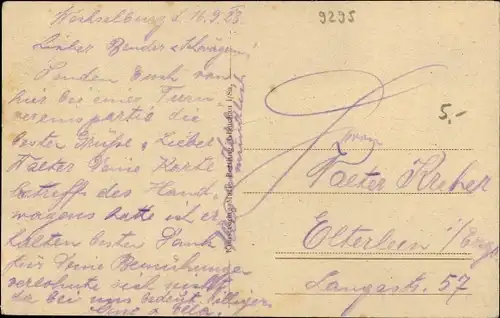 Wechselburg d. 16.9.28.
Lieber Bruder u. Schwägerin!
Senden Euch von
hier bei einer Turn-
vereinspartie die
besten Grüße. Lieber
Walter Deine Karte
betreffs des Hand-
wagens hatte ich er-
halten besten Dank
für Deine Bemühungen
verlohnte sich nicht
da bei uns bedeut. billiger
u. Ella.
mündlich
9295
5.-
Walter Kreher
Elterlein i/Erzg.
Langestr. 57